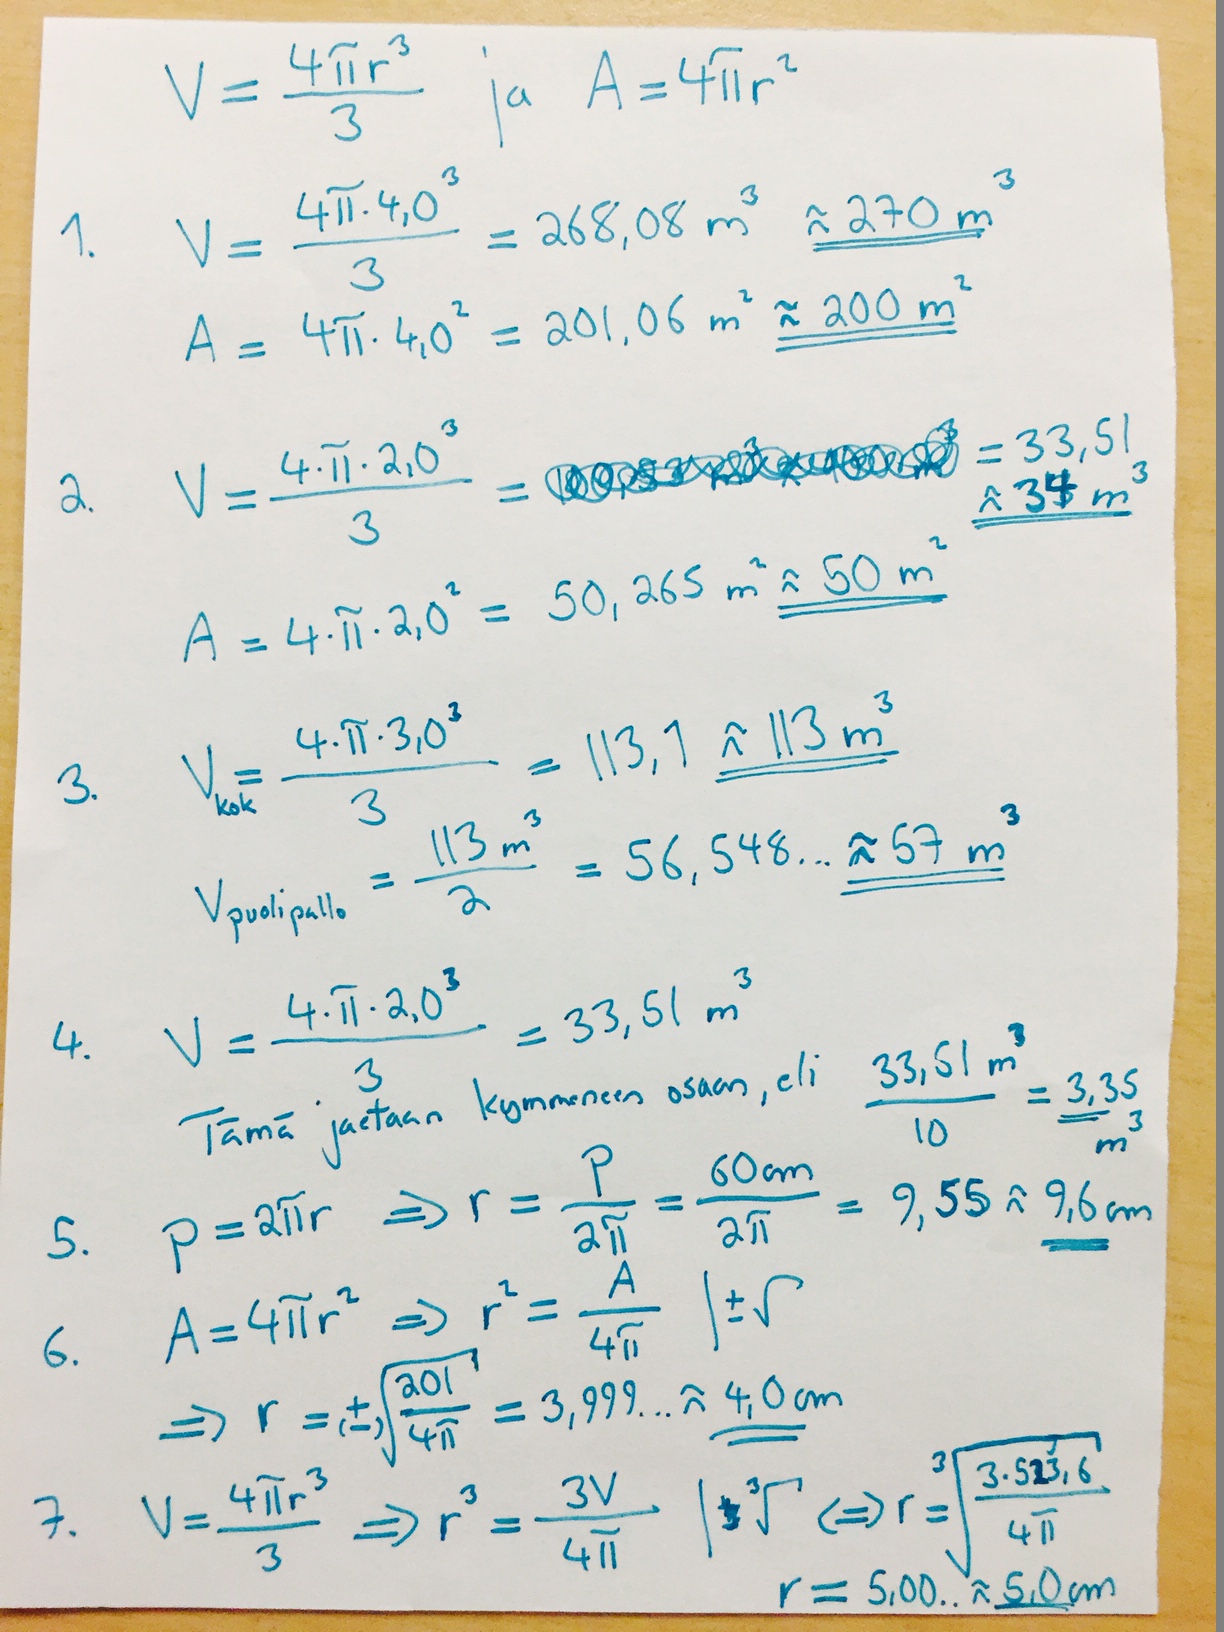 V = 4πr³/3 ja A = 4πr²
1. V = 4π·4,0³/3 = 268,08 m³ ≈ 270 m³
A = 4π·4,0² = 201,06 m² ≈ 200 m²
2. V = 4·π·2,0³/3 = = 33,51
≈ 34 m³
A = 4·π·2,0² = 50,265 m² ≈ 50 m²
3. Vkok = 4·π·3,0³/3 = 113,1 ≈ 113 m³
Vpuolipallo = 113 m³/2 = 56,548... ≈ 57 m³
4. V = 4·π·2,0³/3 = 33,51 m³
Tämä jaetaan kymmeneen osaan, eli 33,51 m³/10 = 3,35
m³
5. p = 2πr ⇒ r = p/2π = 60cm/2π = 9,55 ≈ 9,6 cm
6. A = 4πr² ⇒ r² = A/4π |±√
⇒ r = (±)√(201/4π) = 3,999... ≈ 4,0 cm
7. V = 4πr³/3 ⇒ r³ = 3V/4π | ³√ ⇔ r = ³√(3·523,6/4π)
r = 5,00.. ≈ 5,0 cm